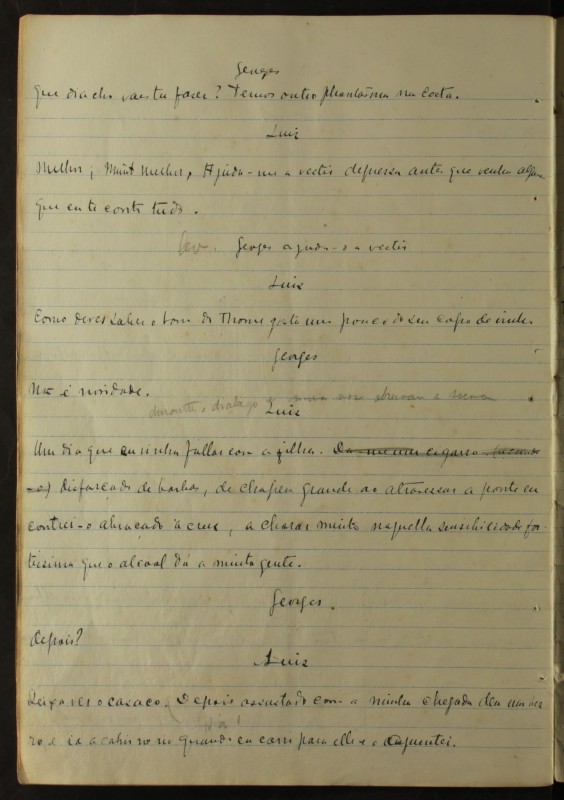 Georges
Que diacho vaes tu fazer? Temos outro phantasma na costa.
Luiz
Melhor, muit melhor. Ajuda-me a vestir depressa antes que venha alguem
que eu te conto tudo.
Georges ajuda-o a vestir
Luiz
Como deves saber o bom do Thome gosta um pouco do seu copo de vinho.
Georges
Não é novidade.
durante o dialogo
Luiz
Um dia que eu vinha fallar com a filha.
disfarçado de barbas, de chapeu grande ao atravessar a ponte en
contrei-o abraçado á cruz, a chorar muito naquella sensibilidade for-
tissima que o alcool dá a muita gente.
Georges.
Depois?
Luiz
Deixa ver o casaco. Depois assustado com a minha chegada deu um ber
ro e ia a cahir no rio quando eu corri para elle e o aguentei.